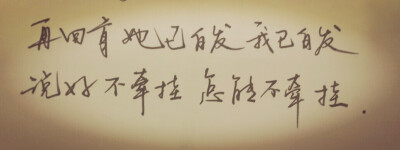 再回首她已白发我已白发
说好不牵挂 怎能不牵挂.